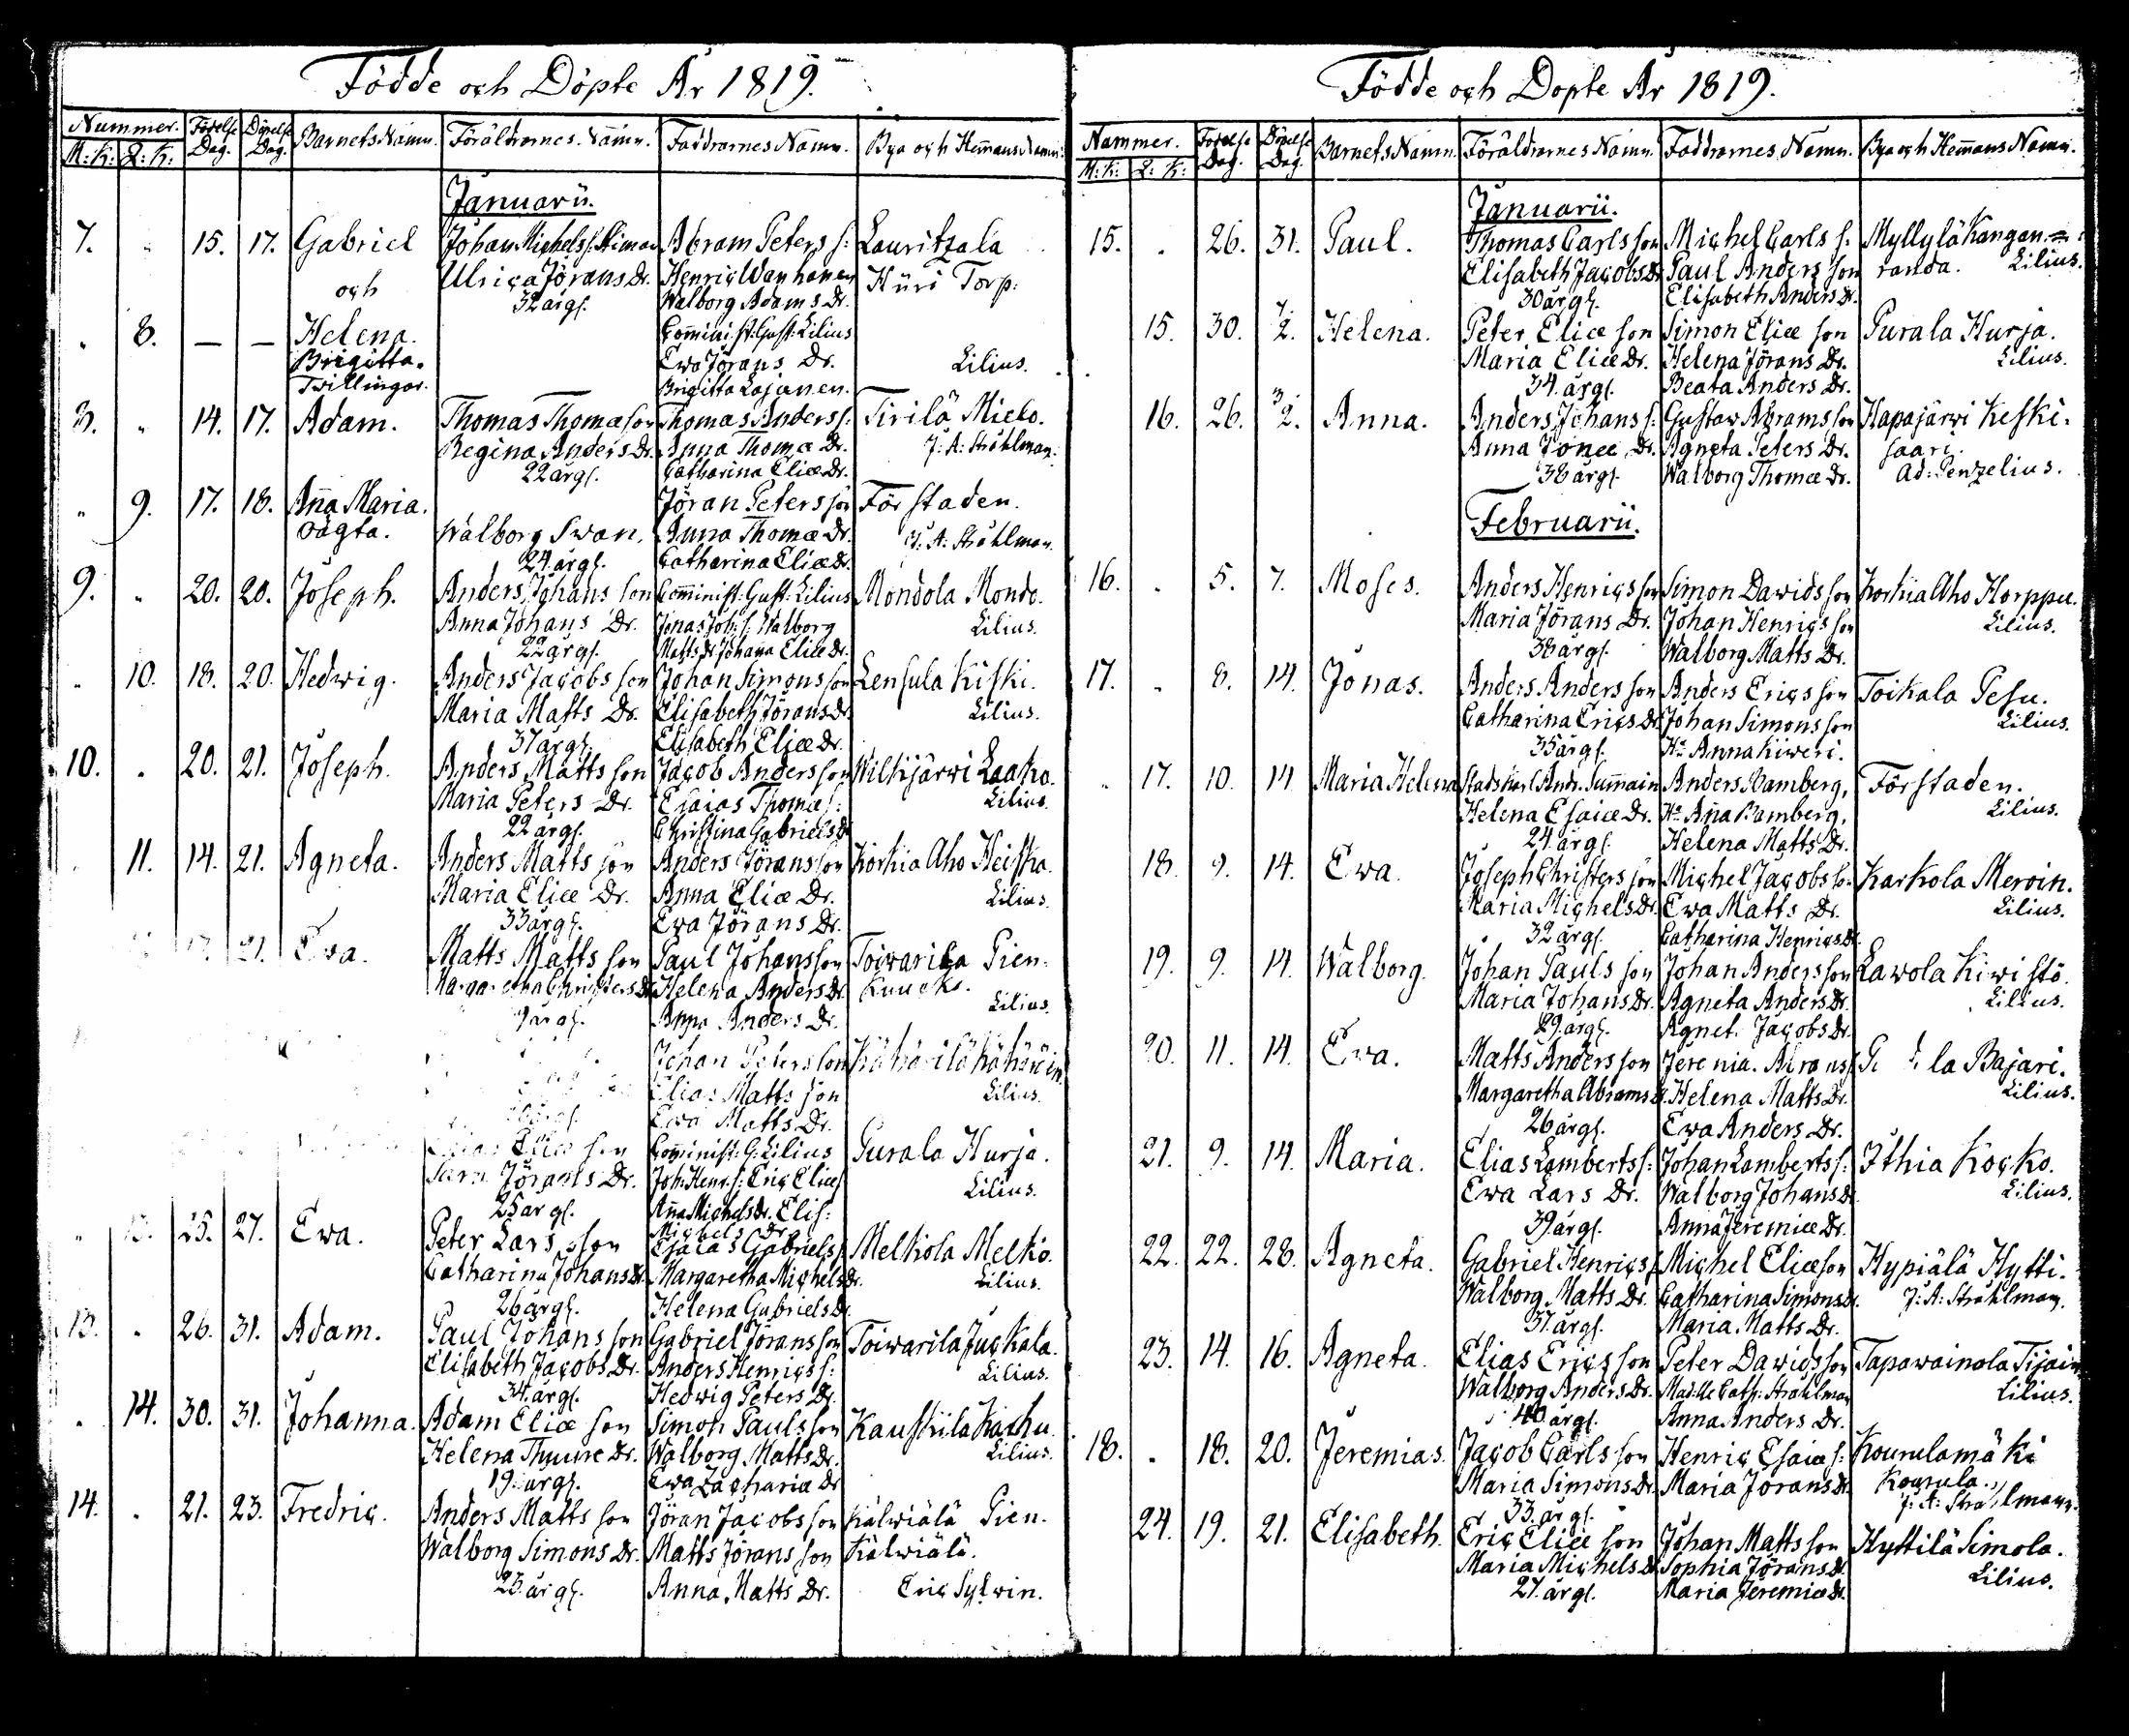 Födde och Döpte År 1819.
Nummer. Födelse Dag. Döpelse Dag. Barnets Namn. Föräldrarnes Namn. Faddrarnes Namn. Bya och Hem̄ans Namn.
M: K: Q: K:
Januarii.
7. 15. 17. Gabriel Johan Michels s: Abram Peters s: Lauritzala
och Ulrica Jörans Dr. Henric Wanhanen Hüri Torp:
32 årgl. Walborg Adams Dr.
8. — — Helena Com̄inist: Gust: Lilius
Brigitta. Ewa Jörans Dr. Lilius.
Tvillingar. Brigitta Lajanen.
8. 14. 17. Adam. Thomas Thomæ son Thomas Anders s: Tirilä Mielo.
Regina Anders Dr. Anna Thomæ Dr. J: A: Ståhlman.
22 årgl. Catharina Eliæ Dr.
9. 17. 18. An̄a Maria. Jöran Peters son Förstaden.
oägta. Walborg Swan. Anna Thomæ Dr. J: A: Ståhlman.
24 årgl. Catharina Eliæ Dr.
9. 20. 20. Joseph. Anders Johans son Com̄inist: Gust: Lilius Mondola Mondo.
Anna Johans Dr. Jonas Joh: s: Walborg Lilius.
22 årgl. Matts Dr Johana Eliæ Dr.
10. 18. 20. Hedwig. Anders Jacobs son Johan Simons son Lensula Kiski.
Maria Matts Dr. Elisabeth Jörans Dr. Lilius.
37 årgl. Elisabeth Eliæ Dr.
10. 20. 21. Joseph. Anders Matts son Jacob Anders son Wilkjärwi Laako.
Maria Peters Dr. Esaias Thomæ s: Lilius.
22 årgl. Christina Gabriels Dr
11. 14. 21. Agneta. Anders Matts son Anders Jörans son Korkia Aho Heiska.
Maria Eliæ Dr. Anna Eliæ Dr. Lilius.
33 årgl. Ewa Jörans Dr.
21. Ewa. Matts Matts son Paul Johans son Toiwarila Pien-
Margaretha Christers Dr Helena Anders Dr. Kuucko.
årgl. Anna Anders Dr. Lilius.
Johan Peters son
Elias Matts son Lilius.
Ewa Matts Dr.
Eliæ son Com̄inist: G: Lilius Purala Hurja.
Jörans Dr. Joh: Henr: s: Eric Eliæ s Lilius.
25 årgl. An̄a Michels Dr. Elis:
Michels Dr
25. 27. Ewa. Peter Lars son Esaias Gabriels s Melkola Melko.
Catharina Johans Dr. Margaretha Michels Dr. Lilius.
26 årgl. Helena Gabriels Dr.
13. 26. 31. Adam. Paul Johans son Gabriel Jörans son Toiwarila Juckala.
Elisabeth Jacobs Dr. Anders Henrics s: Lilius.
34. årgl. Hedwig Peters Dr.
14. 30. 31. Johanna. Adam Eliæ son Simon Pauls son Kauskila Karhu.
Helena Thuure Dr. Walborg Matts Dr. Lilius.
19. årgl. Ewa Zachariæ Dr
14. 21. 23. Fredric. Anders Matts son Jöran Jacobs son Kälwiälä Pien.
Walborg Simons Dr. Matts Jörans son Kälwiälä.
23. årgl. Anna Matts Dr. Eric Sylwin.
Födde och Döpte År 1819.
Nummer. Födelse Dag. Döpelse Dag. Barnets Namn. Föräldrarnes Namn. Faddrarnes Namn. Bya och Hem̄ans Namn.
M: K: Q: K:
Januarii.
15. 26. 31. Paul. Thomas Carls son Michel Carls s. Myllylä Kangan=
Elisabeth Jacobs Dr Paul Anders son randa. Lilius.
30 årgl. Elisabeth Anders Dr.
15. 30. 2. Helena. Peter Eliæ son Simon Eliæ son Purala Hurja.
Maria Eliæ Dr. Helena Jörans Dr. Lilius.
34. årgl. Beata Anders Dr.
16. 26. 2. Anna. Anders Johans s: Gustaw Abrams son Hapajärwi Keski-
Anna Jonæ Dr. Agneta Peters Dr. saari.
38 årgl. Walborg Thomæ Dr. Ad: Penzelius.
Februarii.
16. 5. 7. Moses. Anders Henrics son Simon Dawids son Korkia Aho Horppu.
Maria Jörans Dr. Johan Henrics son Lilius.
38 årgl. Walborg Matts Dr.
17. 8. 14. Jonas. Anders Anders son Anders Erics son Toikala Pesu.
Catharina Erics Dr. Johan Simons son Lilius.
35 årgl. Hu Anna Kiweri.
17. 10. 14. Maria Helena Stadskarl Andr. Sum̄ain Anders Bamberg, Förstaden.
Helena Esaiæ Dr. Hu An̄a Bamberg, Lilius.
24. årgl. Helena Matts Dr.
18. 9. 14. Ewa. Joseph Christers son Michel Jacobs son Karkola Meroin.
Maria Michels Dr. Ewa Matts Dr. Lilius.
32 årgl. Catharina Henrics Dr.
19. 9. 14. Walborg. Johan Pauls son Johan Anders son Lawola Kiwistö.
Maria Johans Dr. Agneta Anders Dr. Lilius.
29. årgl. Agnet. Jacobs Dr
20. 11. 14. Ewa. Matts Anders son Jeremia. Abrams s la Bajari.
Margaretha Abrams Dr. Helena Matts Dr. Lilius.
26 årgl. Ewa Anders Dr.
21. 9. 14. Maria. Elias Lamberts s: Johan Lamberts s: Ithia Kocko.
Ewa Lars Dr. Walborg Johans Dr. Lilius.
39. årgl. Anna Jeremiæ Dr.
22. 22. 28. Agneta. Gabriel Henrics s Michel Eliæ son Hypiälä Hytti.
Walborg Matts Dr. Catharina Simons Dr. J: A: Ståhlman.
37. årgl. Maria Matts Dr.
23. 14. 16. Agneta. Elias Erics son Peter Dawids son Tapawainola Tijain
Walborg Anders Dr. Mad:lle Cath: Ståhlman Lilius.
40 årgl. Anna Anders Dr.
18. 18. 20. Jeremias. Jacob Carls son Henric Esaiæ s: Kourulamäki
Maria Simons Dr. Maria Jörans Dr Kourula.
33. årgl. J: A: Ståhlman.
24. 19. 21. Elisabeth. Eric Eliæ son Johan Matts son Hyttilä Simola.
Maria Michels Dr Sophia Jörans Dr. Lilius.
27. årgl. Maria Jeremiæ Dr.